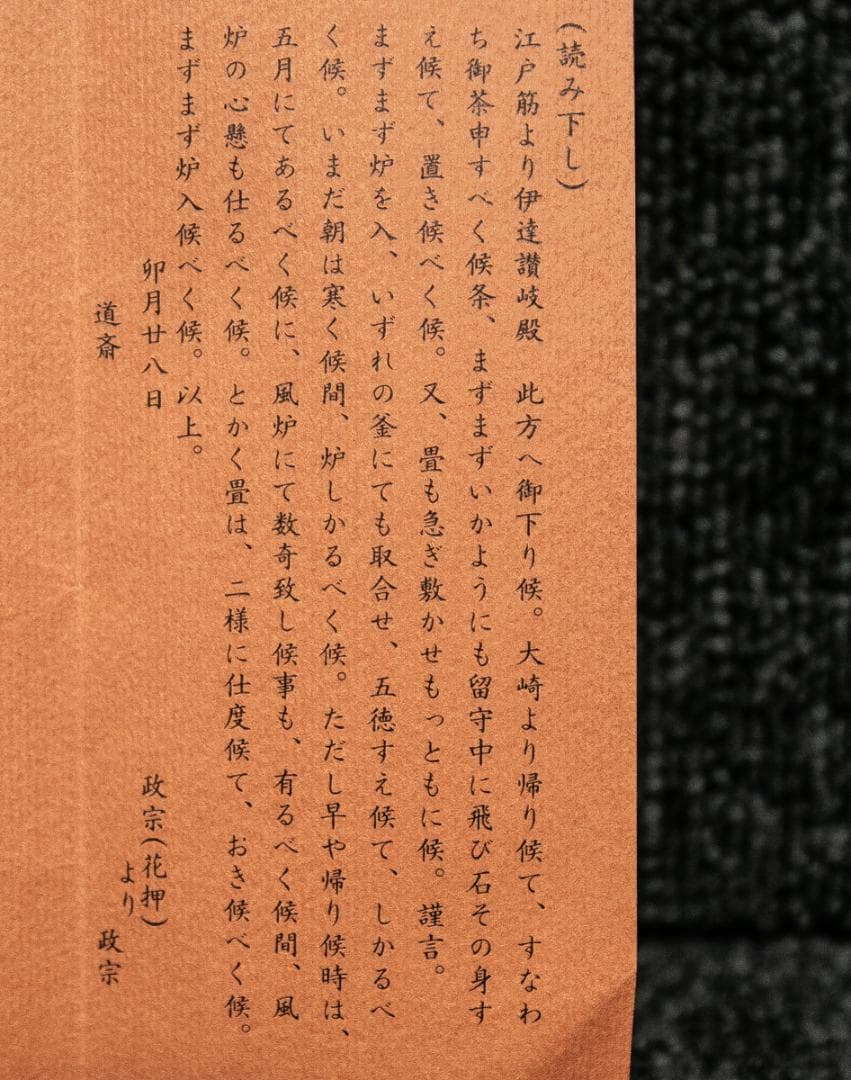 （読み下し）
江戸筋より伊達讃岐殿　此方へ御下り候。大崎より帰り候て、すなわ
ち御茶申すべく候条、まずまずいかようにも留守中に飛び石その身す
え候て、置き候べく候。又、畳も急ぎ敷かせもっともに候。謹言。
まずまず炉を入、いずれの釜にても取合せ、五徳すえ候て、しかるべ
く候。いまだ朝は寒く候間、炉しかるべく候。ただし早や帰り候時は、
五月にてあるべく候に、風炉にて数奇致し候事も、有るべく候間、風
炉の心懸も仕るべく候。とかく畳は、二様に仕度候て、おき候べく候。
まずまず炉入候べく候。以上。
卯月廿八日　政宗（花押）
より
道斎　政宗